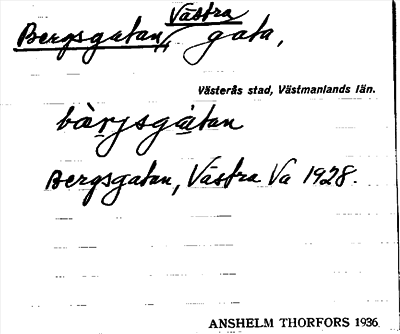 Västra
Bergsgatan, gata,
Västerås stad, Västmanlands län.
bàrjsgàtan
Bergsgatan, Västra Va 1928.
ANSHELM THORFORS 1936.